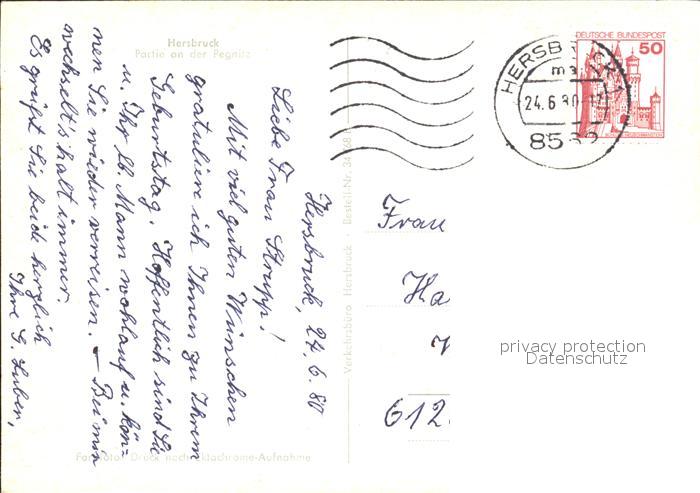 Hersbruck
Partie an der Pegnitz
Hersbruck, 24.6.80
Liebe Frau Strupp!
Mit viel guten Wünschen
gratuliere ich Ihnen zu Ihrem
Geburtstag. Hoffentlich sind Sie
u. Ihr lb. Mann wohlauf u. kön-
nen Sie wieder verreisen. – Bei mir
wechselt's halt immer.
Es grüßt Sie beide herzlich
Ihre G. Luben,
Farbfoto: Druck nach Ektachrome-Aufnahme
Verkehrsbüro Hersbruck · Bestell-Nr.
HERSB
24.6.80
DEUTSCHE BUNDESPOST
50
Frau
Ha
612
privacy protection
Datenschutz